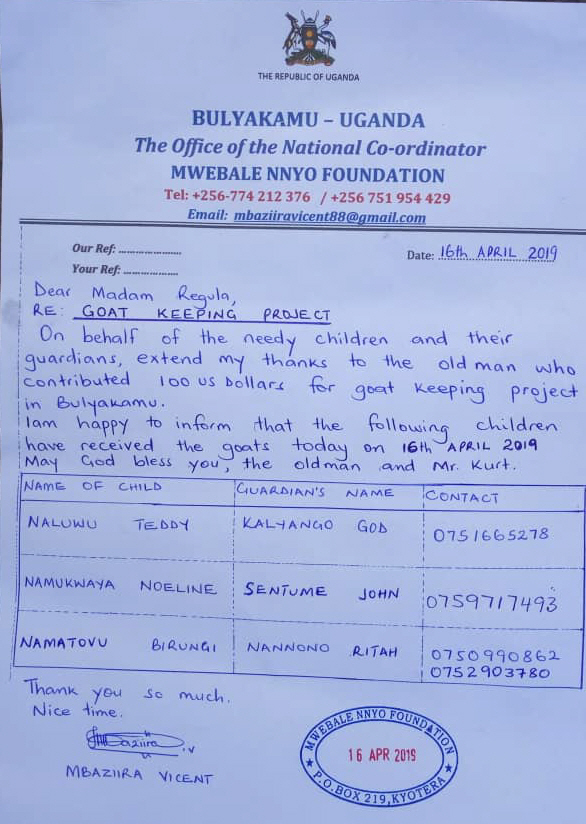 THE REPUBLIC OF UGANDA
BULYAKAMU – UGANDA
The Office of the National Co-ordinator
MWEBALE NNYO FOUNDATION
Tel: +256-774 212 376 / +256 751 954 429
Email: mbaziiravicent88@gmail.com
Our Ref: ........................
Date: 16th APRIL 2019
Your Ref: .....................
Dear Madam Regula,
RE: GOAT KEEPING PROJECT
On behalf of the needy children and their
guardians, extend my thanks to the old man who
contributed 100 US Dollars for goat keeping project
in Bulyakamu.
Iam happy to inform that the following children
have received the goats today on 16th APRIL 2019
May God bless you, the oldman and Mr. Kurt.
NAME OF CHILD GUARDIAN'S NAME CONTACT
NALUWU TEDDY KALYANGO GOD 0751665278
NAMUKWAYA NOELINE SENTUME JOHN 0759717493
NAMATOVU BIRUNGI NANNONO RITAH 0750990862
0752903780
Thank you so much.
Nice time.
Mbaziira .V
MBAZIIRA VICENT
MWEBALE NNYO FOUNDATION
16 APR 2019
P.O.BOX 219, KYOTERA